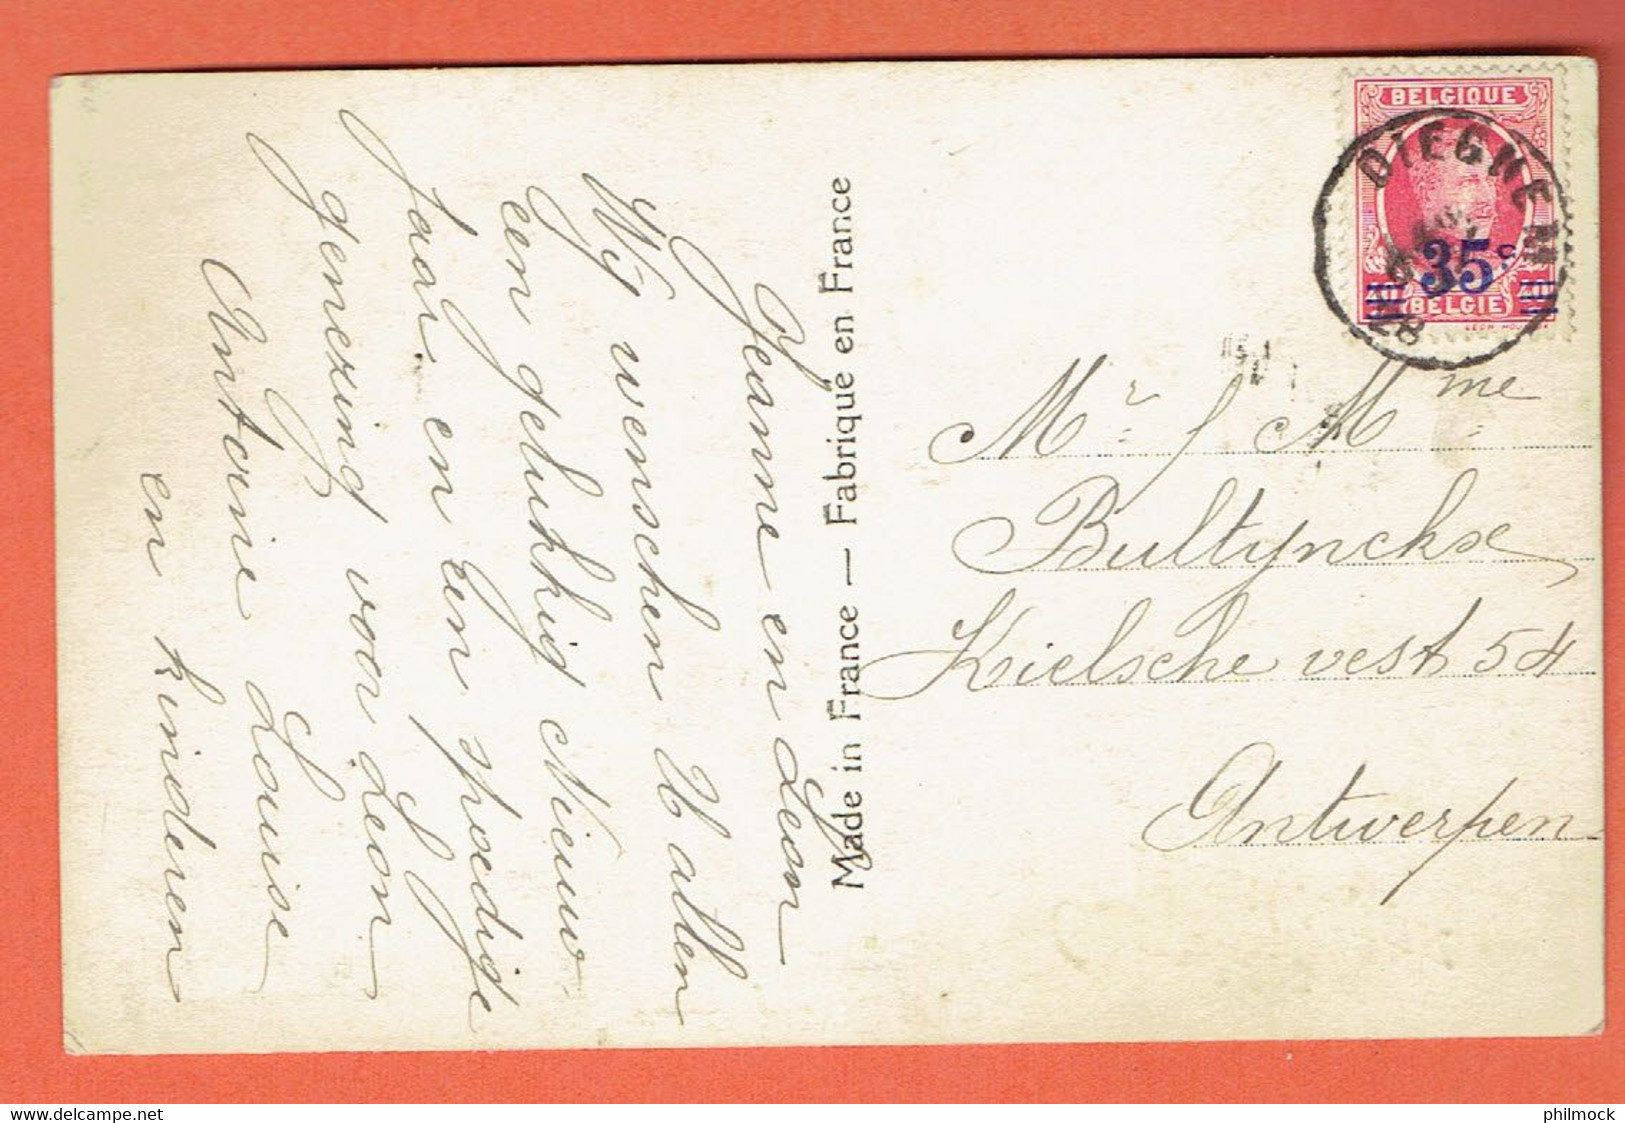 Jeanne en Leon
Wij wenschen U allen
een gelukkig Nieuw-
Jaar en een spoedige
genezing voor Leon
Antoine Louise
en kinderen
Made in France — Fabrique en France
BELGIQUE
DIEGHEM
28
35c
BELGIE
Mr & Mme
Bultynckx
Kielsche vest 54
Antwerpen
www.delcampe.net
philmock